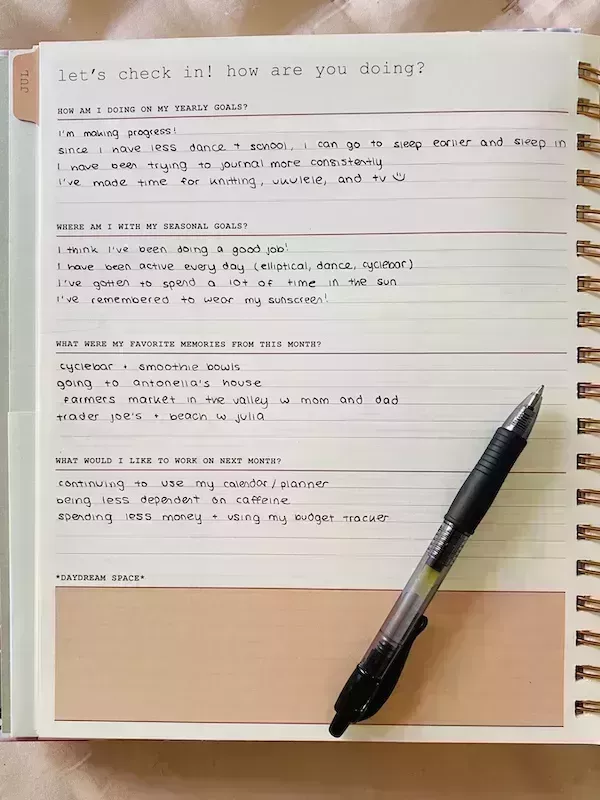 JUL
let's check in! how are you doing?
HOW AM I DOING ON MY YEARLY GOALS?
I'm making progress!
since I have less dance + school, I can go to sleep earlier and sleep in
I have been trying to journal more consistently
I've made time for knitting, ukulele, and tv
WHERE AM I WITH MY SEASONAL GOALS?
I think I've been doing a good job!
I have been active every day (elliptical, dance, cyclebar)
I've gotten to spend a lot of time in the sun
I've remembered to wear my sunscreen!
WHAT WERE MY FAVORITE MEMORIES FROM THIS MONTH?
cyclebar + smoothie bowls
going to antonella's house
farmers market in the valley w mom and dad
trader joe's + beach w julia
WHAT WOULD I LIKE TO WORK ON NEXT MONTH?
continuing to use my calendar/planner
being less dependent on caffeine
spending less money + using my budget tracker
*DAYDREAM SPACE*